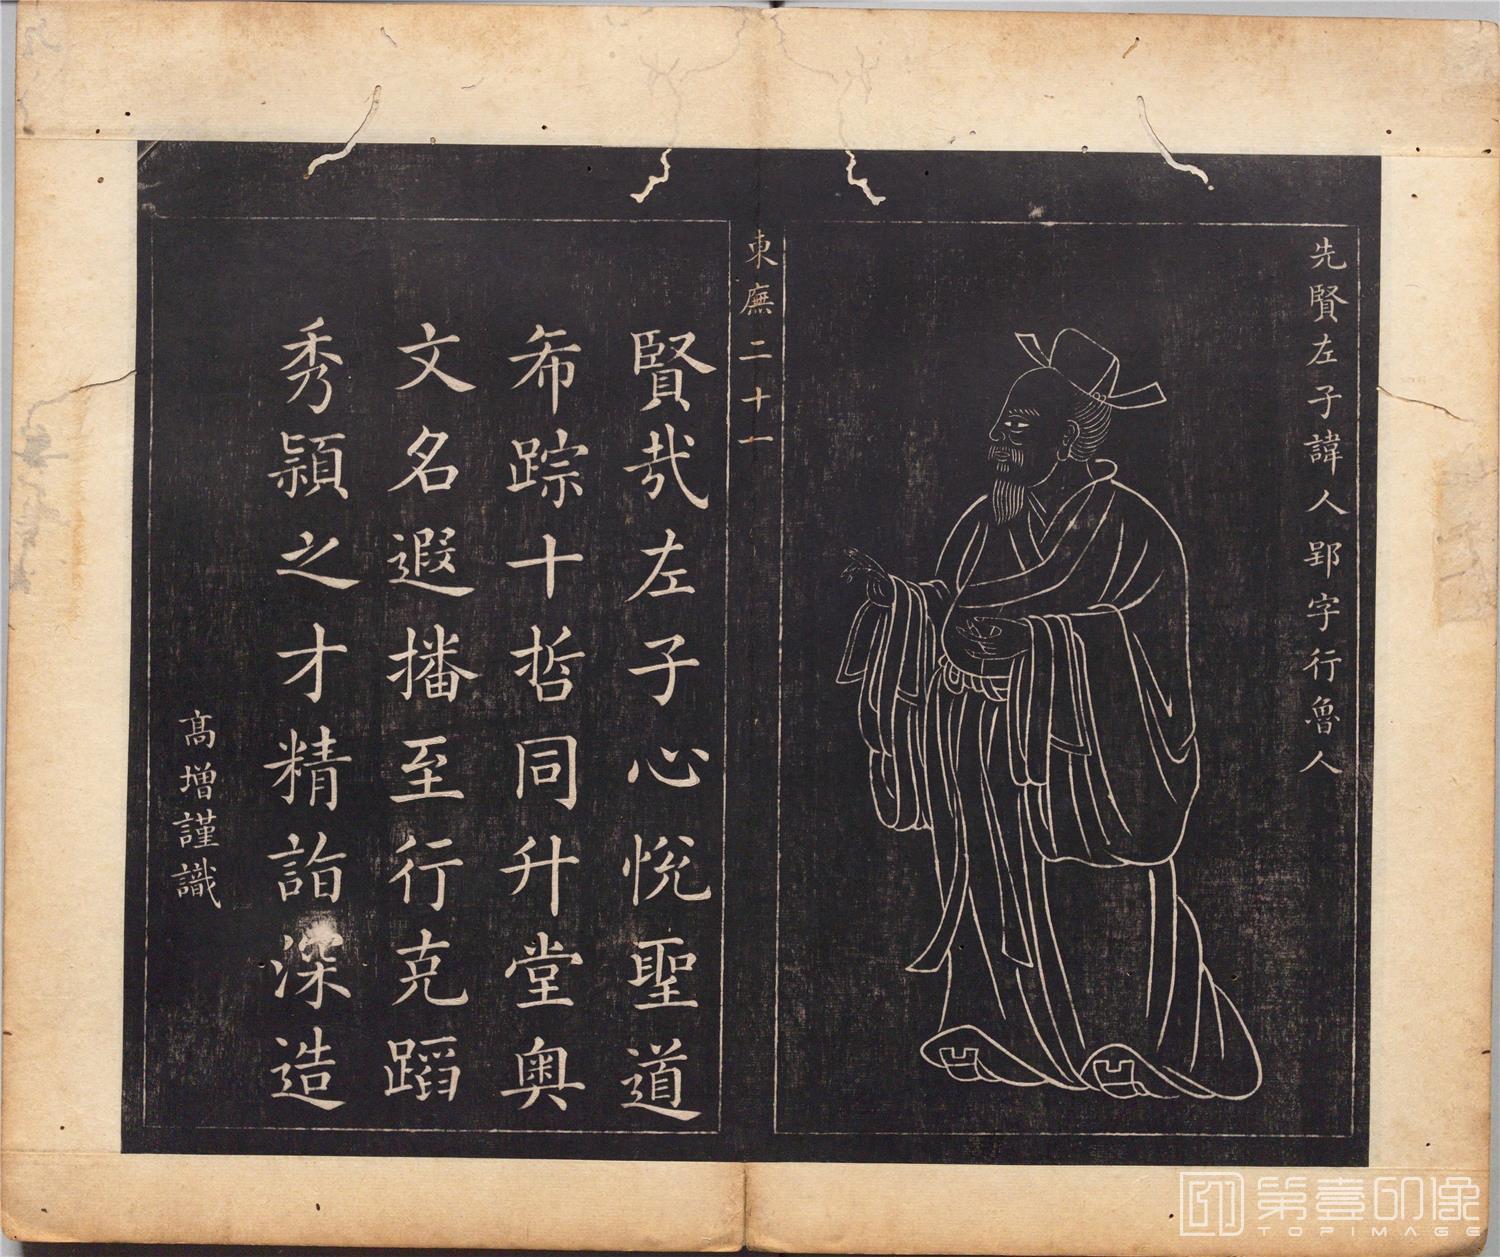 先賢左子諱人郢字行魯人
東廡二十一
賢哉左子心悅聖道
希踪十哲同升堂奧
文名遐播至行克蹈
秀穎之才精詣深造
高增謹識
第壹印像
TOPIMAGE